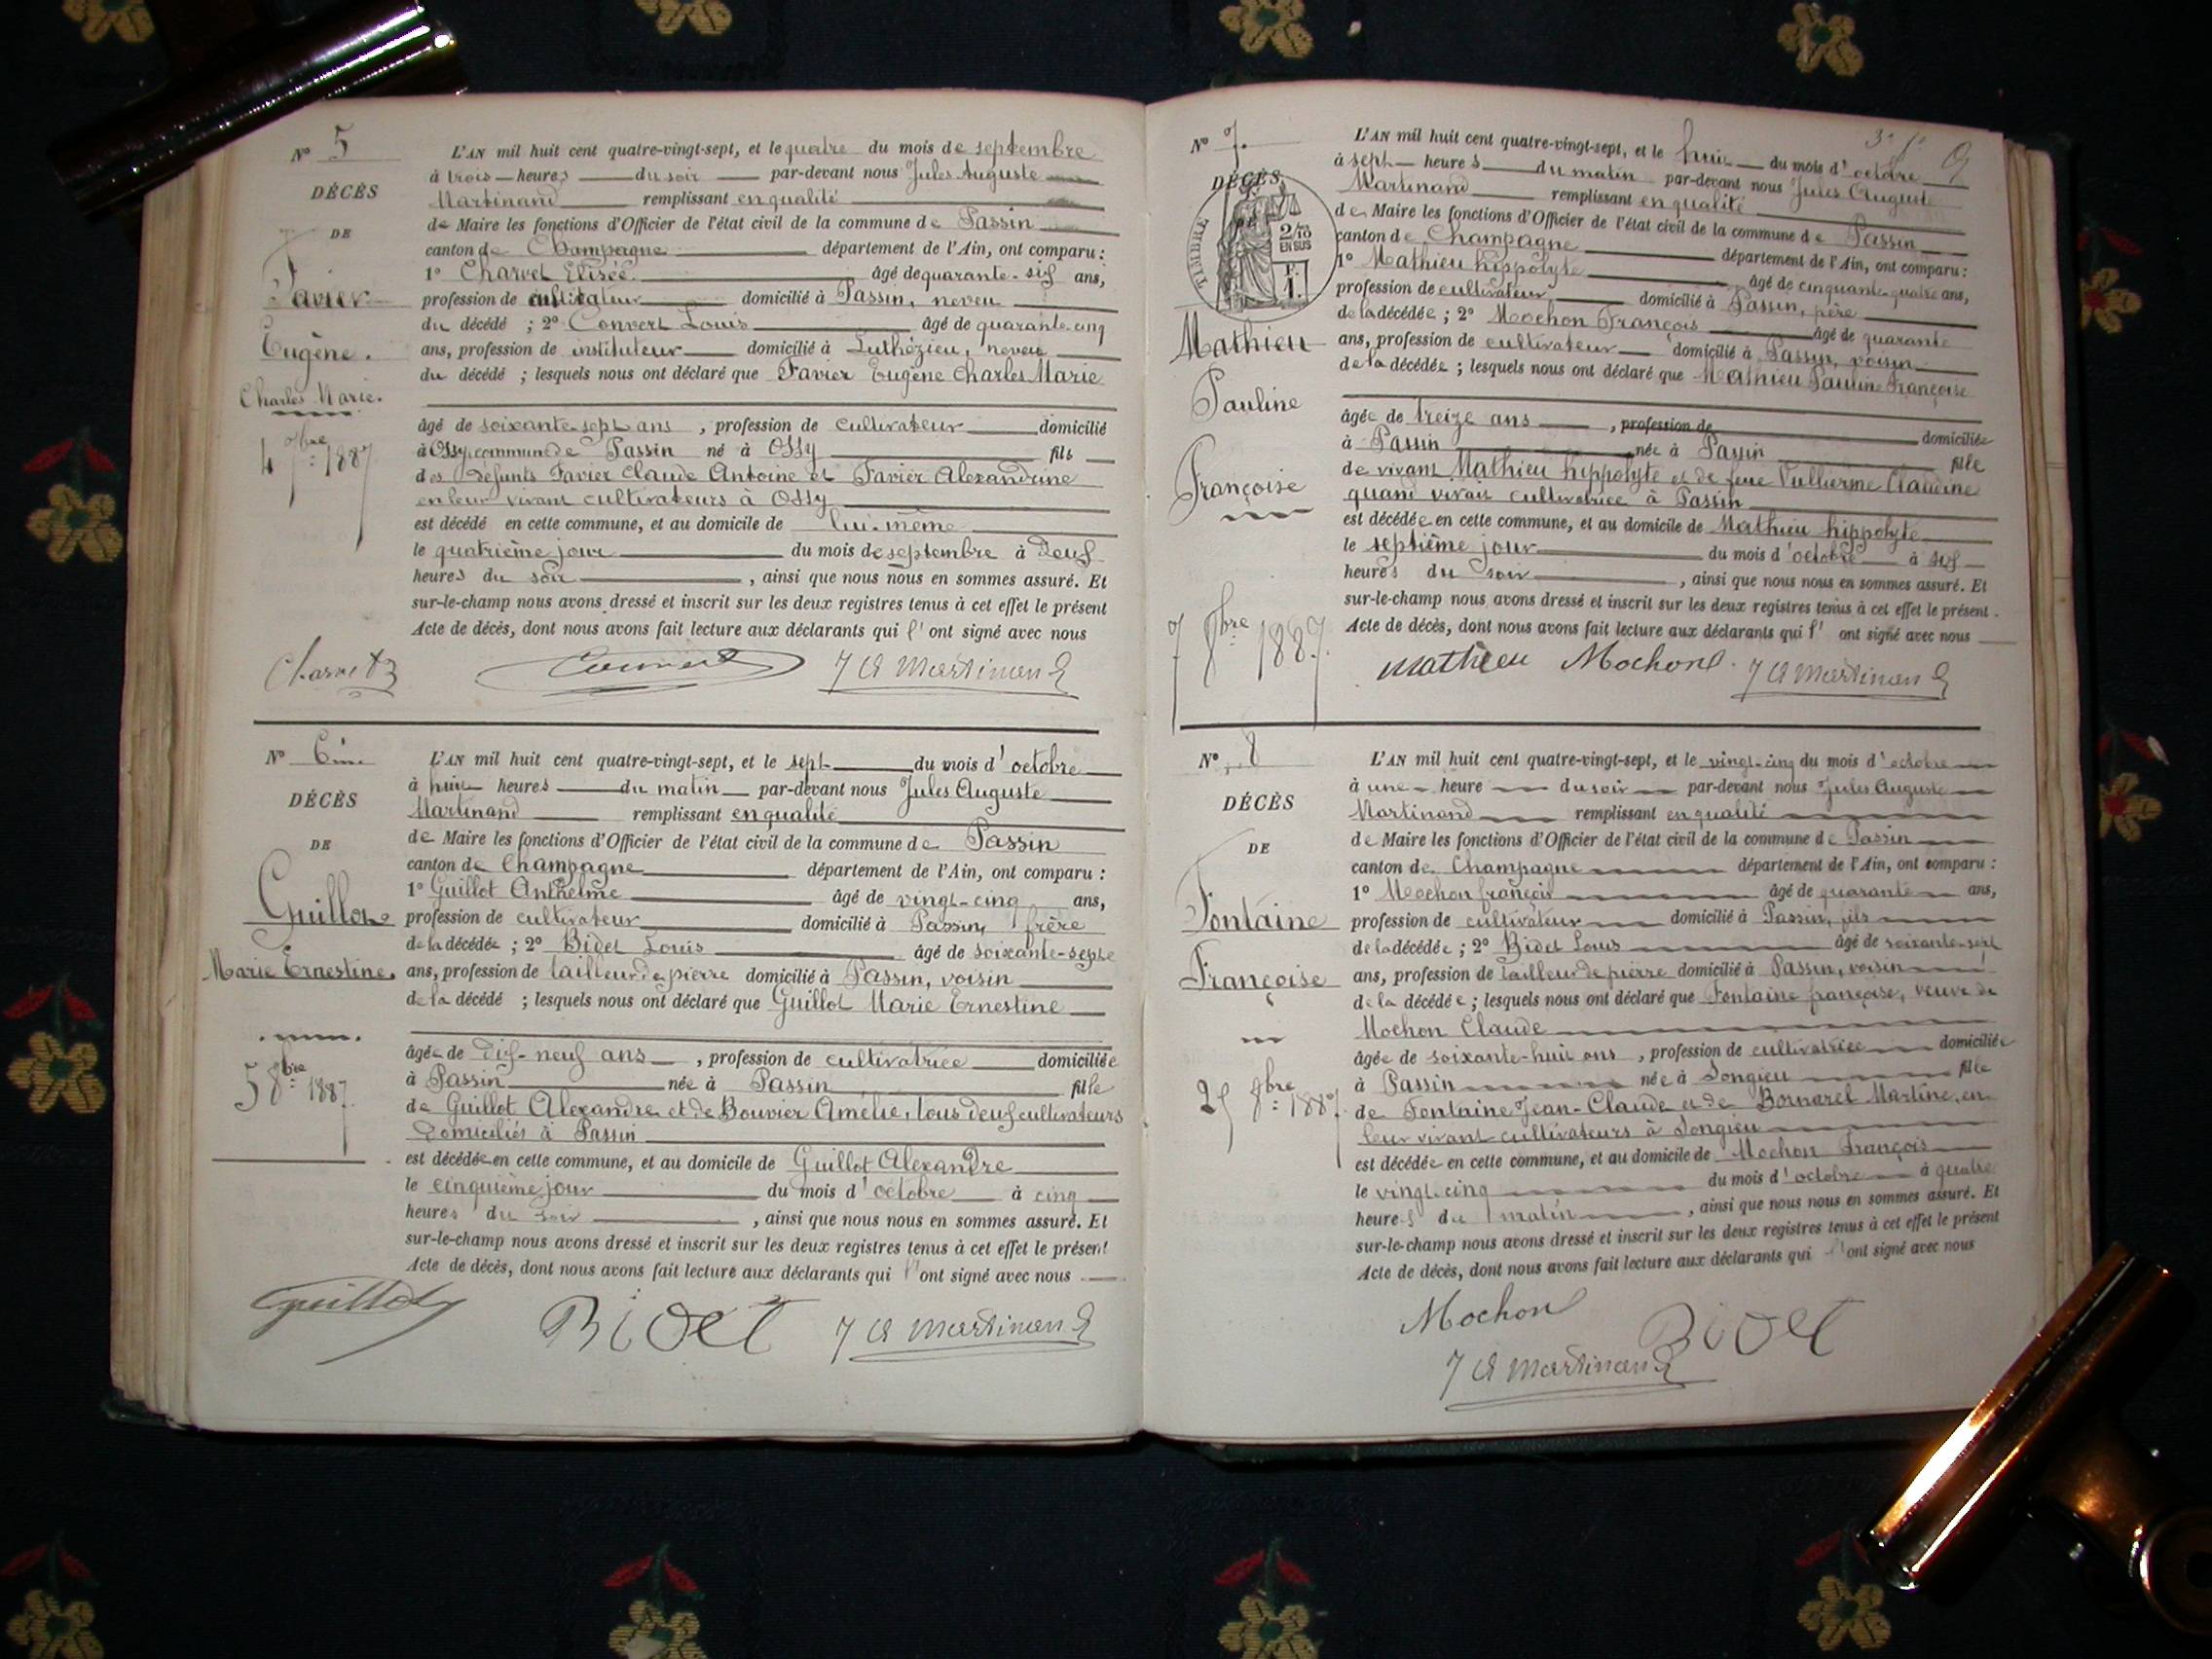 N° 5
DÉCÈS
DE
Favier
Eugène.
Charles Marie.
4 7bre 1887
L'AN mil huit cent quatre-vingt-sept, et le quatre du mois de septembre
à trois heures du soir par-devant nous Jules Auguste
Martinand remplissant en qualité
de Maire les fonctions d'Officier de l'état civil de la commune de Passin
canton de Champagne département de l'Ain, ont comparu :
1° Charvet Elisée âgé de quarante-six ans,
profession de cultivateur domicilié à Passin, neveu
du décédé ; 2° Convert Louis âgé de quarante-cinq
ans, profession de instituteur domicilié à Luthézieu, neveu
du décédé ; lesquels nous ont déclaré que Favier Eugène Charles Marie
âgé de soixante-sept ans, profession de cultivateur domicilié
à Ossy, commune de Passin né à Ossy fils
des défunts Favier Claude Antoine et Favier Alexandrine
en leur vivant cultivateurs à Ossy
est décédé en cette commune, et au domicile de lui-même
le quatrième jour du mois de septembre à deux
heures du soir, ainsi que nous nous en sommes assuré. Et
sur-le-champ nous avons dressé et inscrit sur les deux registres tenus à cet effet le présent
Acte de décès, dont nous avons fait lecture aux déclarants qui l'ont signé avec nous
Charvet Convert J A Martinand
N° 6ème
DÉCÈS
DE
Guillot
Marie Ernestine.
5 8bre 1887
L'AN mil huit cent quatre-vingt-sept, et le sept du mois d'octobre
à huit heures du matin par-devant nous Jules Auguste
Martinand remplissant en qualité
de Maire les fonctions d'Officier de l'état civil de la commune de Passin
canton de Champagne département de l'Ain, ont comparu :
1° Guillot Anthelme âgé de vingt-cinq ans,
profession de cultivateur domicilié à Passin, frère
de la décédée ; 2° Bidet Louis âgé de soixante-sept
ans, profession de tailleur de pierre domicilié à Passin, voisin
de la décédé ; lesquels nous ont déclaré que Guillot Marie Ernestine
âgée de dix-neuf ans, profession de cultivatrice domiciliée
à Passin née à Passin fille
de Guillot Alexandre et de Bouvier Amélie, tous deux cultivateurs
domiciliés à Passin
est décédée en cette commune, et au domicile de Guillot Alexandre
le cinquième jour du mois d'octobre à cinq
heures du soir, ainsi que nous nous en sommes assuré. Et
sur-le-champ nous avons dressé et inscrit sur les deux registres tenus à cet effet le présent
Acte de décès, dont nous avons fait lecture aux déclarants qui l'ont signé avec nous
Guillot Bidet J A Martinand
N° 7.
DÉCÈS
TIMBRE
2/10
EN SUS
F.
1.
Mathieu
Pauline
Françoise
7 8bre 1887.
L'AN mil huit cent quatre-vingt-sept, et le huit du mois d'octobre
à sept heures du matin par-devant nous Jules Auguste
Martinand remplissant en qualité
de Maire les fonctions d'Officier de l'état civil de la commune de Passin
canton de Champagne département de l'Ain, ont comparu :
1° Mathieu hippolyte âgé de cinquante-quatre ans,
profession de cultivateur domicilié à Passin, père
de la décédée ; 2° Mochon François âgé de quarante
ans, profession de cultivateur domicilié à Passin, voisin
de la décédée ; lesquels nous ont déclaré que Mathieu Pauline Françoise
âgée de treize ans, profession de domiciliée
à Passin née à Passin fille
de vivant Mathieu hippolyte et de feue Vullierme Claudine
quand vivait cultivatrice à Passin
est décédée en cette commune, et au domicile de Mathieu hippolyte
le septième jour du mois d'octobre à six
heures du soir, ainsi que nous nous en sommes assuré. Et
sur-le-champ nous avons dressé et inscrit sur les deux registres tenus à cet effet le présent
Acte de décès, dont nous avons fait lecture aux déclarants qui l'ont signé avec nous
Mathieu Mochon J A Martinand
N° 8
DÉCÈS
DE
Fontaine
Françoise
25 8bre 1887.
L'AN mil huit cent quatre-vingt-sept, et le vingt-cinq du mois d'octobre
à une heure du soir par-devant nous Jules Auguste
Martinand remplissant en qualité
de Maire les fonctions d'Officier de l'état civil de la commune de Passin
canton de Champagne département de l'Ain, ont comparu :
1° Mochon françois âgé de quarante ans,
profession de cultivateur domicilié à Passin, fils
de la décédée ; 2° Bidet Louis âgé de soixante-sept
ans, profession de tailleur de pierre domicilié à Passin, voisin
de la décédée ; lesquels nous ont déclaré que Fontaine françoise, veuve de
Mochon Claude
âgée de soixante-huit ans, profession de cultivatrice domiciliée
à Passin née à Songieu fille
de Fontaine Jean-Claude et de Bornarel Martine, en
leur vivant cultivateurs à Songieu
est décédée en cette commune, et au domicile de Mochon François
le vingt-cinq du mois d'octobre à quatre
heures du matin, ainsi que nous nous en sommes assuré. Et
sur-le-champ nous avons dressé et inscrit sur les deux registres tenus à cet effet le présent
Acte de décès, dont nous avons fait lecture aux déclarants qui l'ont signé avec nous
Mochon Bidet
J A Martinand